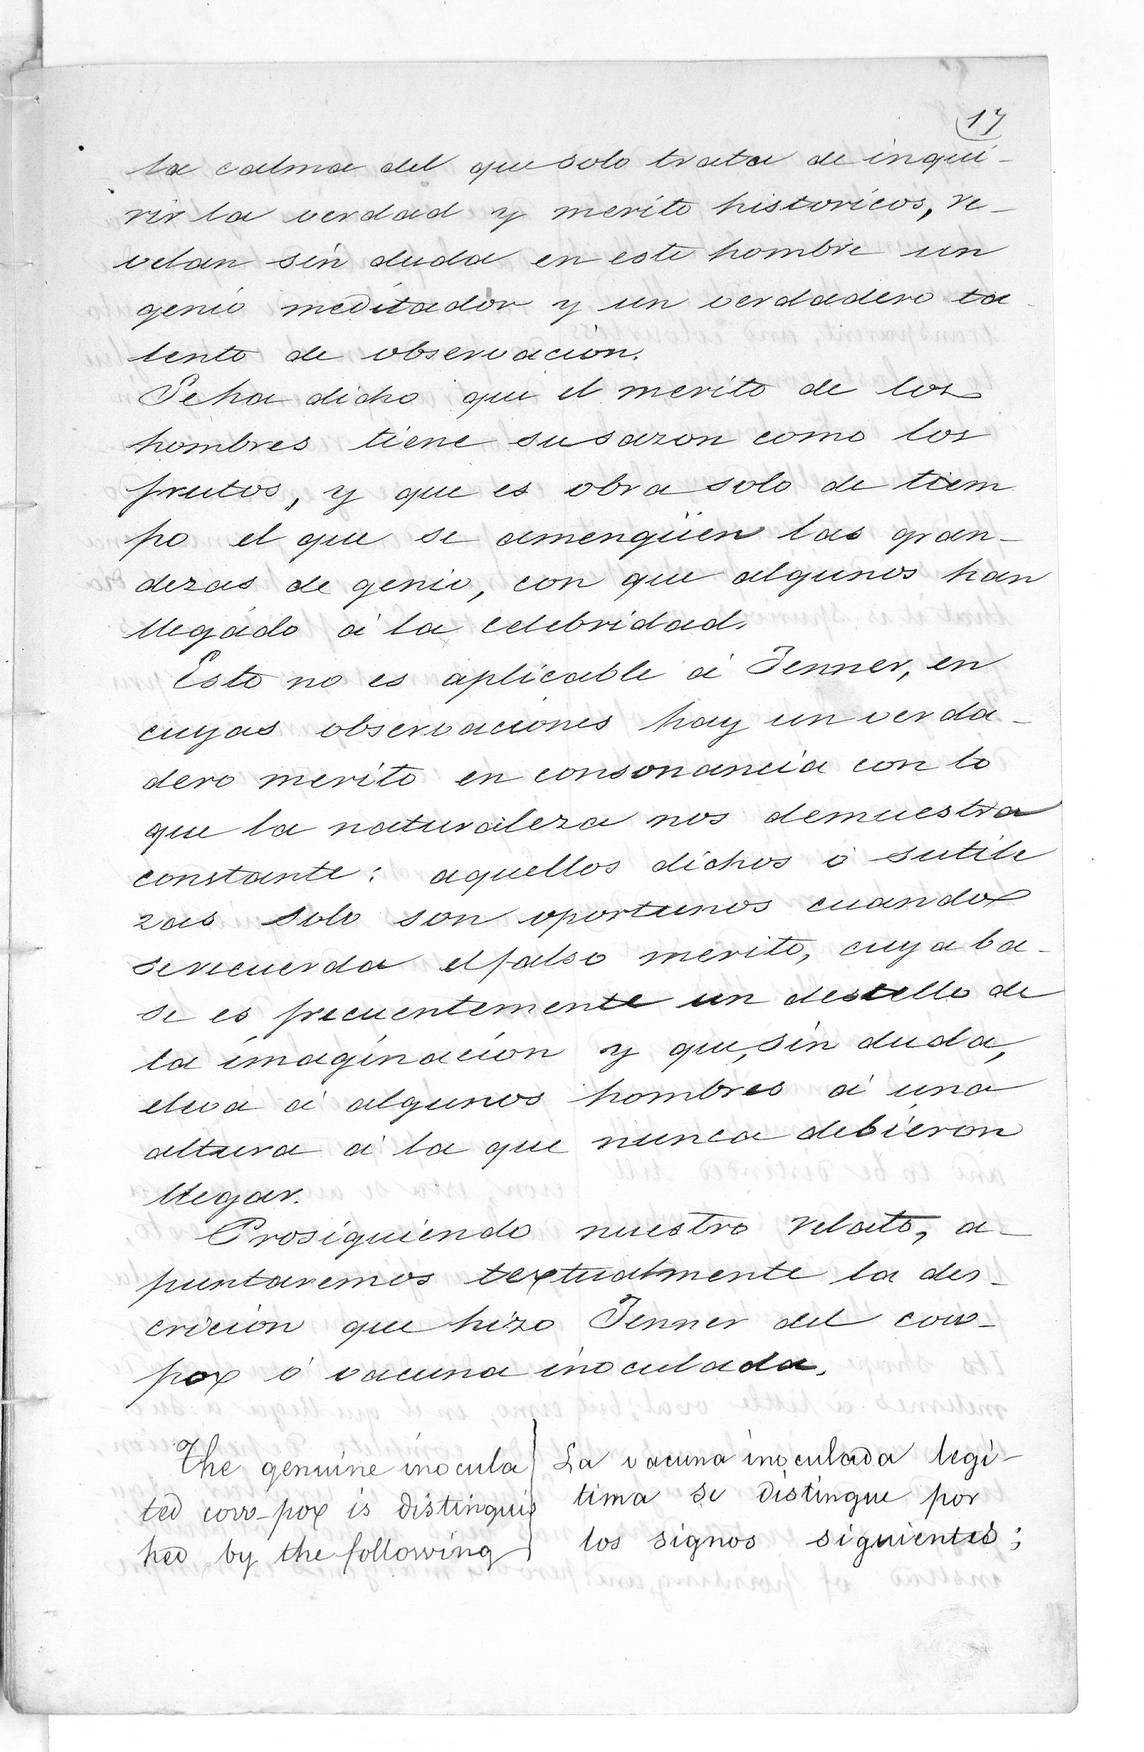 17
la calma del que solo trata de inqui-
rir la verdad y merito historicos, re-
velan sin duda en este hombre un
genio meditador y un verdadero ta-
lento de observacion.
Se ha dicho que el merito de los
hombres tiene su sazon como los
frutos, y que es obra solo de tiem
po el que se amengüen las gran-
dezas de genio, con que algunos han
llegádo á la celebridad.
Esto no es aplicable á Jenner, en
cuyas observaciones hay un verda-
dero merito en consonancia con lo
que la naturaleza nos demuestra
constante: aquellos dichos ó sutile
zas solo son oportunos cuando
se recuerda el falso merito, cuya ba-
se es frecuentemente un destello de
la imaginacion y que, sin duda,
eleva á algunos hombres á una
altura á la que nunca debieron
llegar.
Prosiguiendo nuestro relato, a-
puntaremos textualmente la des-
cricion que hizo Jenner del cow-
pox ó vacuna inoculada.
The genuine inocula
ted cow-pox is distinguis
hed by the following
La vacuna inoculada legi-
tima se distingue por
los signos siguientes: